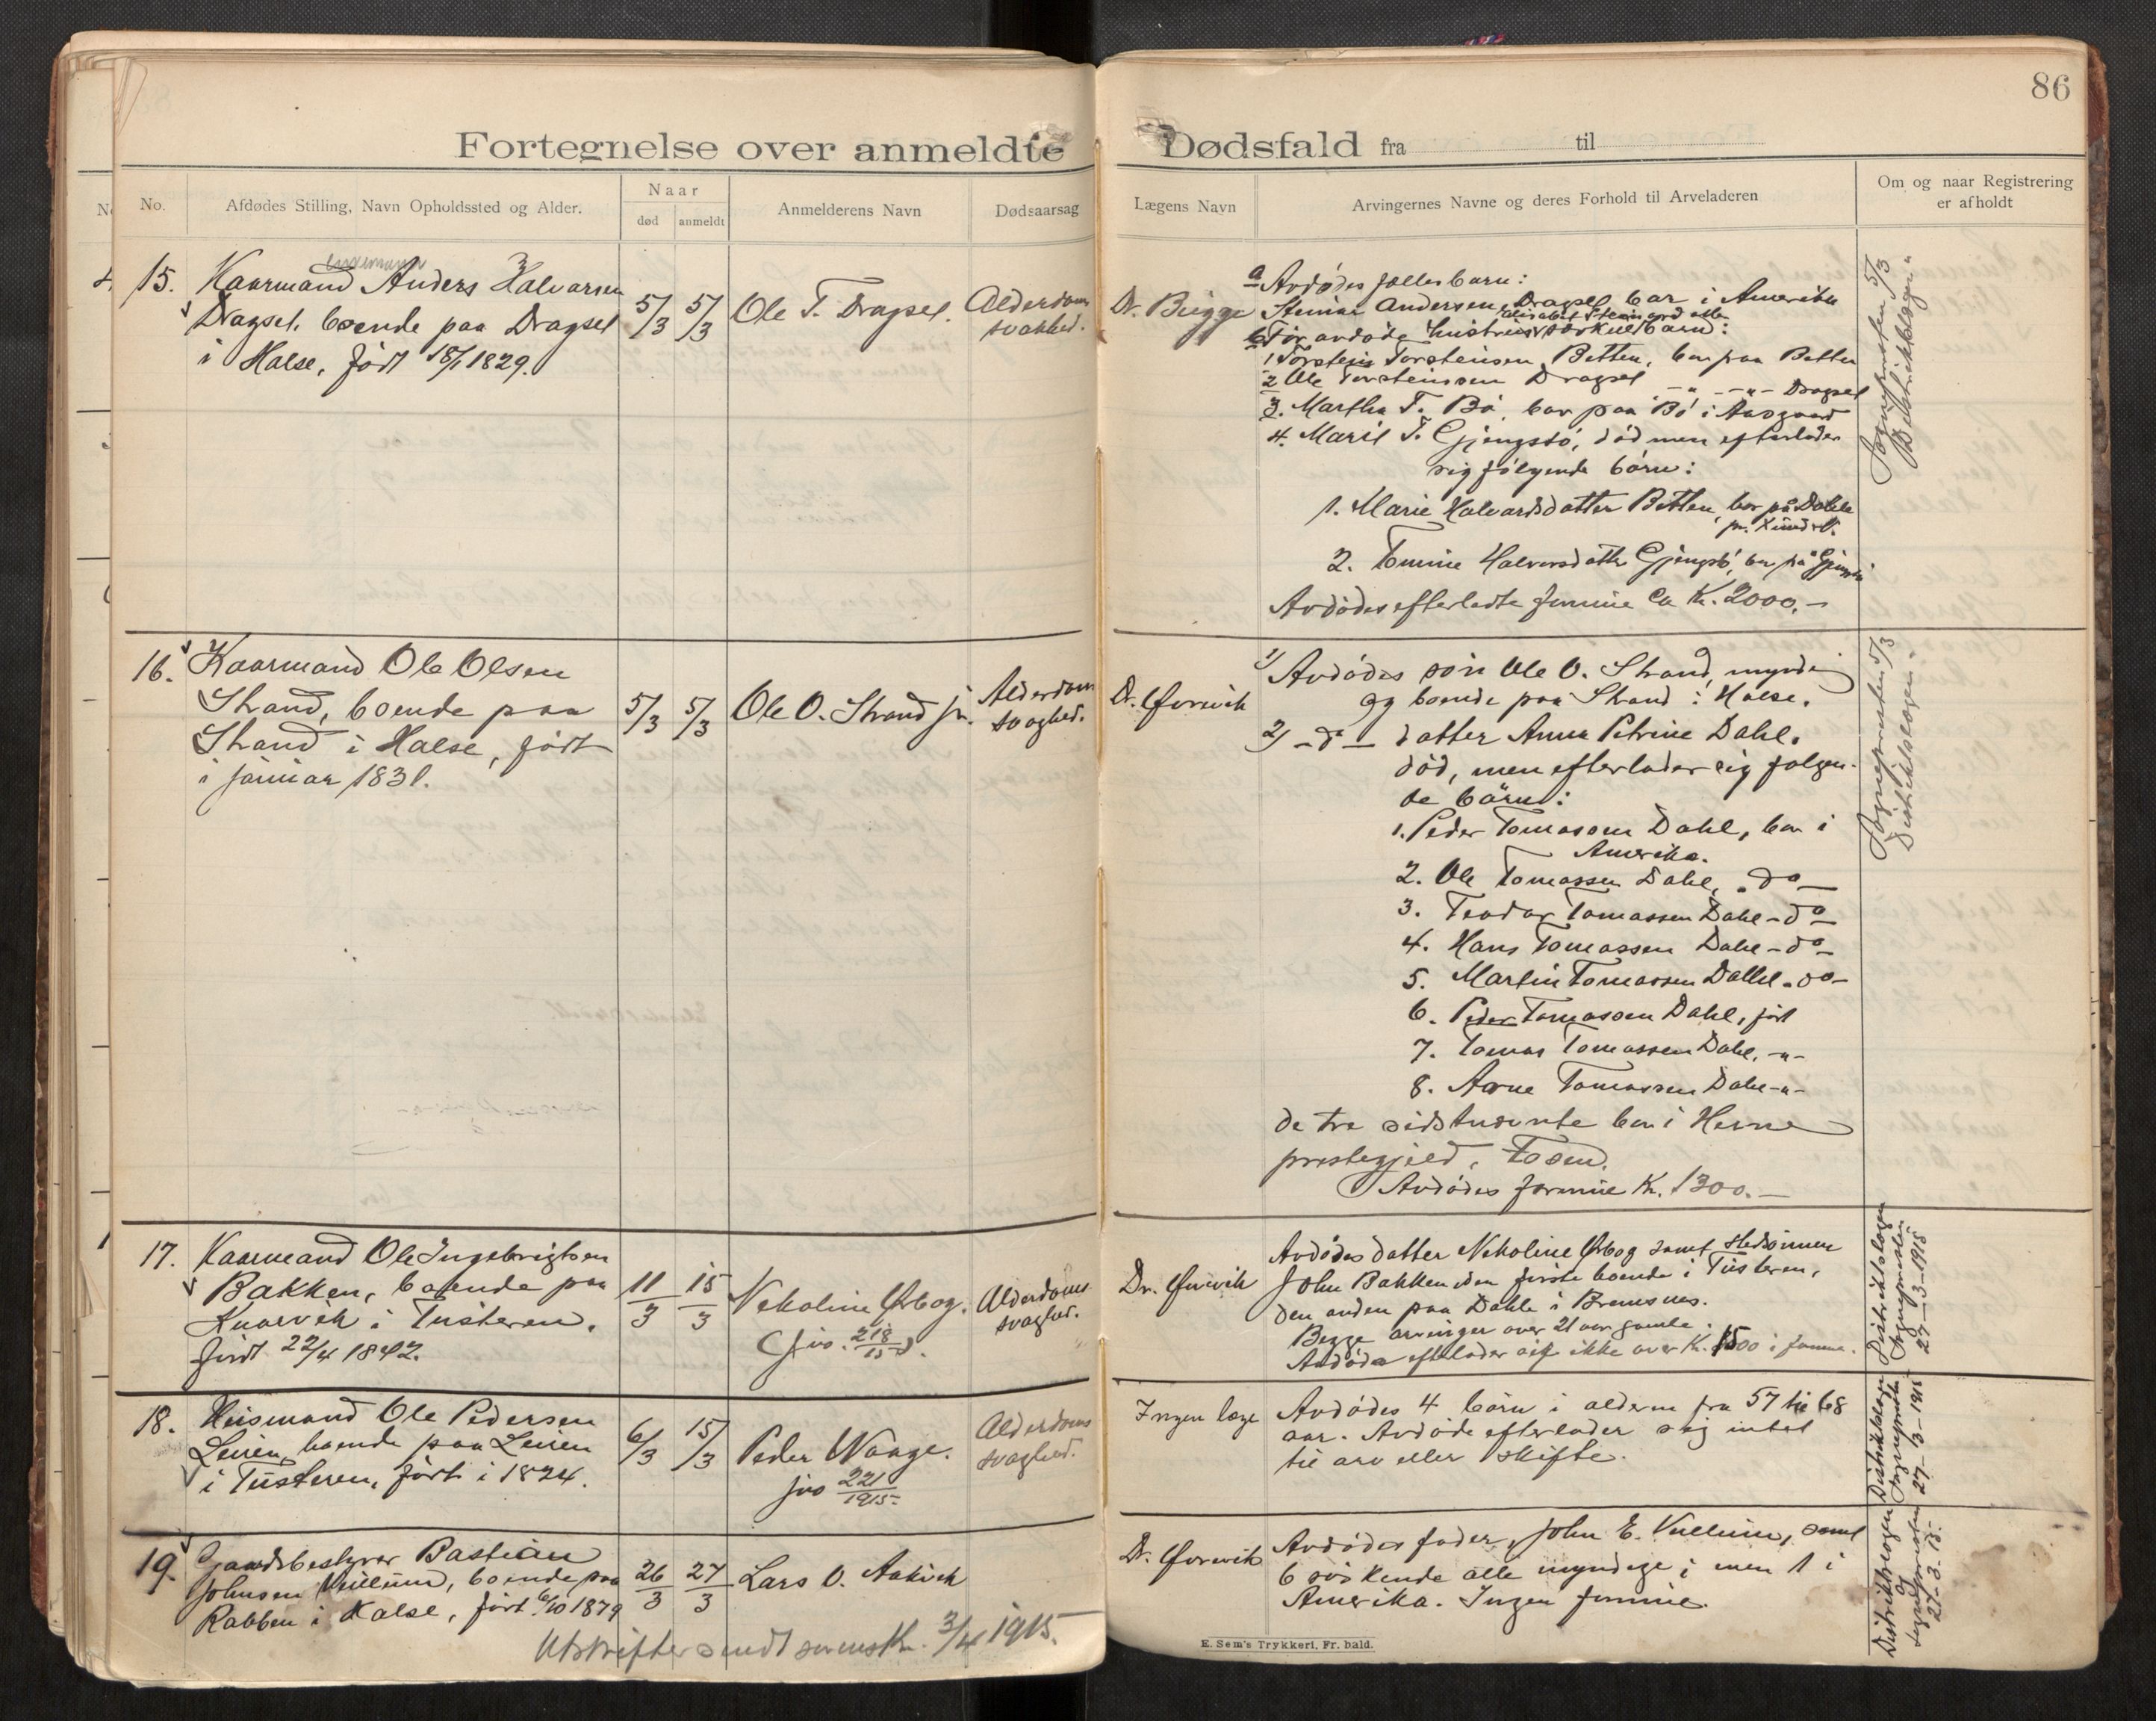 86
Fortegnelse over anmeldte Dødsfald fra til
No.
Afdødes Stilling, Navn Opholdssted og Alder.
Naar
død
anmeldt
Anmelderens Navn
Dødsaarsag
Lægens Navn
Arvingernes Navne og deres Forhold til Arveladeren
Om og naar Registrering
er afholdt
15.
enkemann
Kaarmand Anders Halvarsen
Dragset, boende paa Dragset
i Halse, født 18/1 1829.
5/3
5/3
Ole T. Dragset.
Alderdoms
svakhed.
Dr. Bugge
a Avdødes fællesbarn:
Steinar Andersen Dragset bor i Amerika
b Før avdøde hustrus særkulbarn:
1 Torstein Torstensen Betten, bor paa Betten
2 Ole Torsteinsen Dragset -"- -"- Dragset
3. Martha T. Bø, bor paa Bø i Aasgaard
4. Marit T. Gjengstø, død men efterlader
sig følgende børn:
1. Marie Halvardsdatter Betten, bor på Dahle
pr. Kund.
2. Emine Halvorsdatter Gjengstø, bor på Gjengstø
Avdødes efterladte formue ca Kr. 2000.-
Sognepresten 5/3
Distriktslægen "
16.
Kaarmand Ole Olsen
Strand, boende paa
Strand i Halse, født
i januar 1831.
5/3
5/3
Ole O. Strand jr.
Alderdom
svaghed.
Dr. Ørevik
1/ Avdødes søn Ole O. Strand, myndig
og boende paa Strand i Halse.
2/ -do- datter Anna Petrine Dahl.
død, men efterlader sig følgen-
de børn:
1. Peder Tomassen Dahl, bor i
Amerika.
2. Ole Tomassen Dahl, -do-
3. Teodor Tomassen Dahl -do-
4. Hans Tomassen Dahl -do-
5. Martin Tomassen Dahl -do-
6. Peder Tomassen Dahl, født
7. Tomas Tomassen Dahl, -"-
8. Arne Tomassen Dahl -"-
de tre sidstnævnte bor i Hevne
prestegjeld,
Avdødes formue Kr. 1300.-
Sognepresten 5/3
Distriktslægen "
17.
Kaarmand Ole Ingebrigtsen
Bakken, boende paa
Knarvik i Tusteren.
født 22/4 1842.
11/3
15/3
Nekoline Ørbog.
(jvo. 218/15).
Alderdoms
svaghed.
Dr. Ørevik
Avdødes datter Nekoline Ørbog samt stedsønnen
John Bakken den første boende i Tusteren,
den anden paa Dahle i Bremsnes.
Begge arvinger over 21 aar gamle.
Avdøde efterlader sig ikke over Kr. 1500 i formue.
Distriktslægen
Sognepresten
27-3-1915
18.
Husmand Ole Pedersen
Leiren, boende paa Leiren
i Tusteren, født i 1824.
6/3
15/3
Peder Waage.
jvo 221/1915
Alderdoms
svaghed.
Ingen læge
Avdødes 4 børn i alderen fra 57 til 68
aar. Avdøde efterlader sig intet
til arv eller skifte.
Distriktslægen
Sognepresten
27-3-1915
19.
Gaardsbestyrer Bastian
Johnsen Vullum, boende paa
Rabben i Halse, født 6/10 1879
26/3
27/3
Lars O. Aakvik
Dr. Ørevik
Avdødes fader, John E. Vullum, samt
6 søskende alle myndige; men 1 i
Amerika. Ingen formue.
Distriktslægen
og
Sognepresten
27-3-15.
Utskrifter sendt sorensk. 3/4 1915.
E. Sem's Trykkeri, Fr. hald.